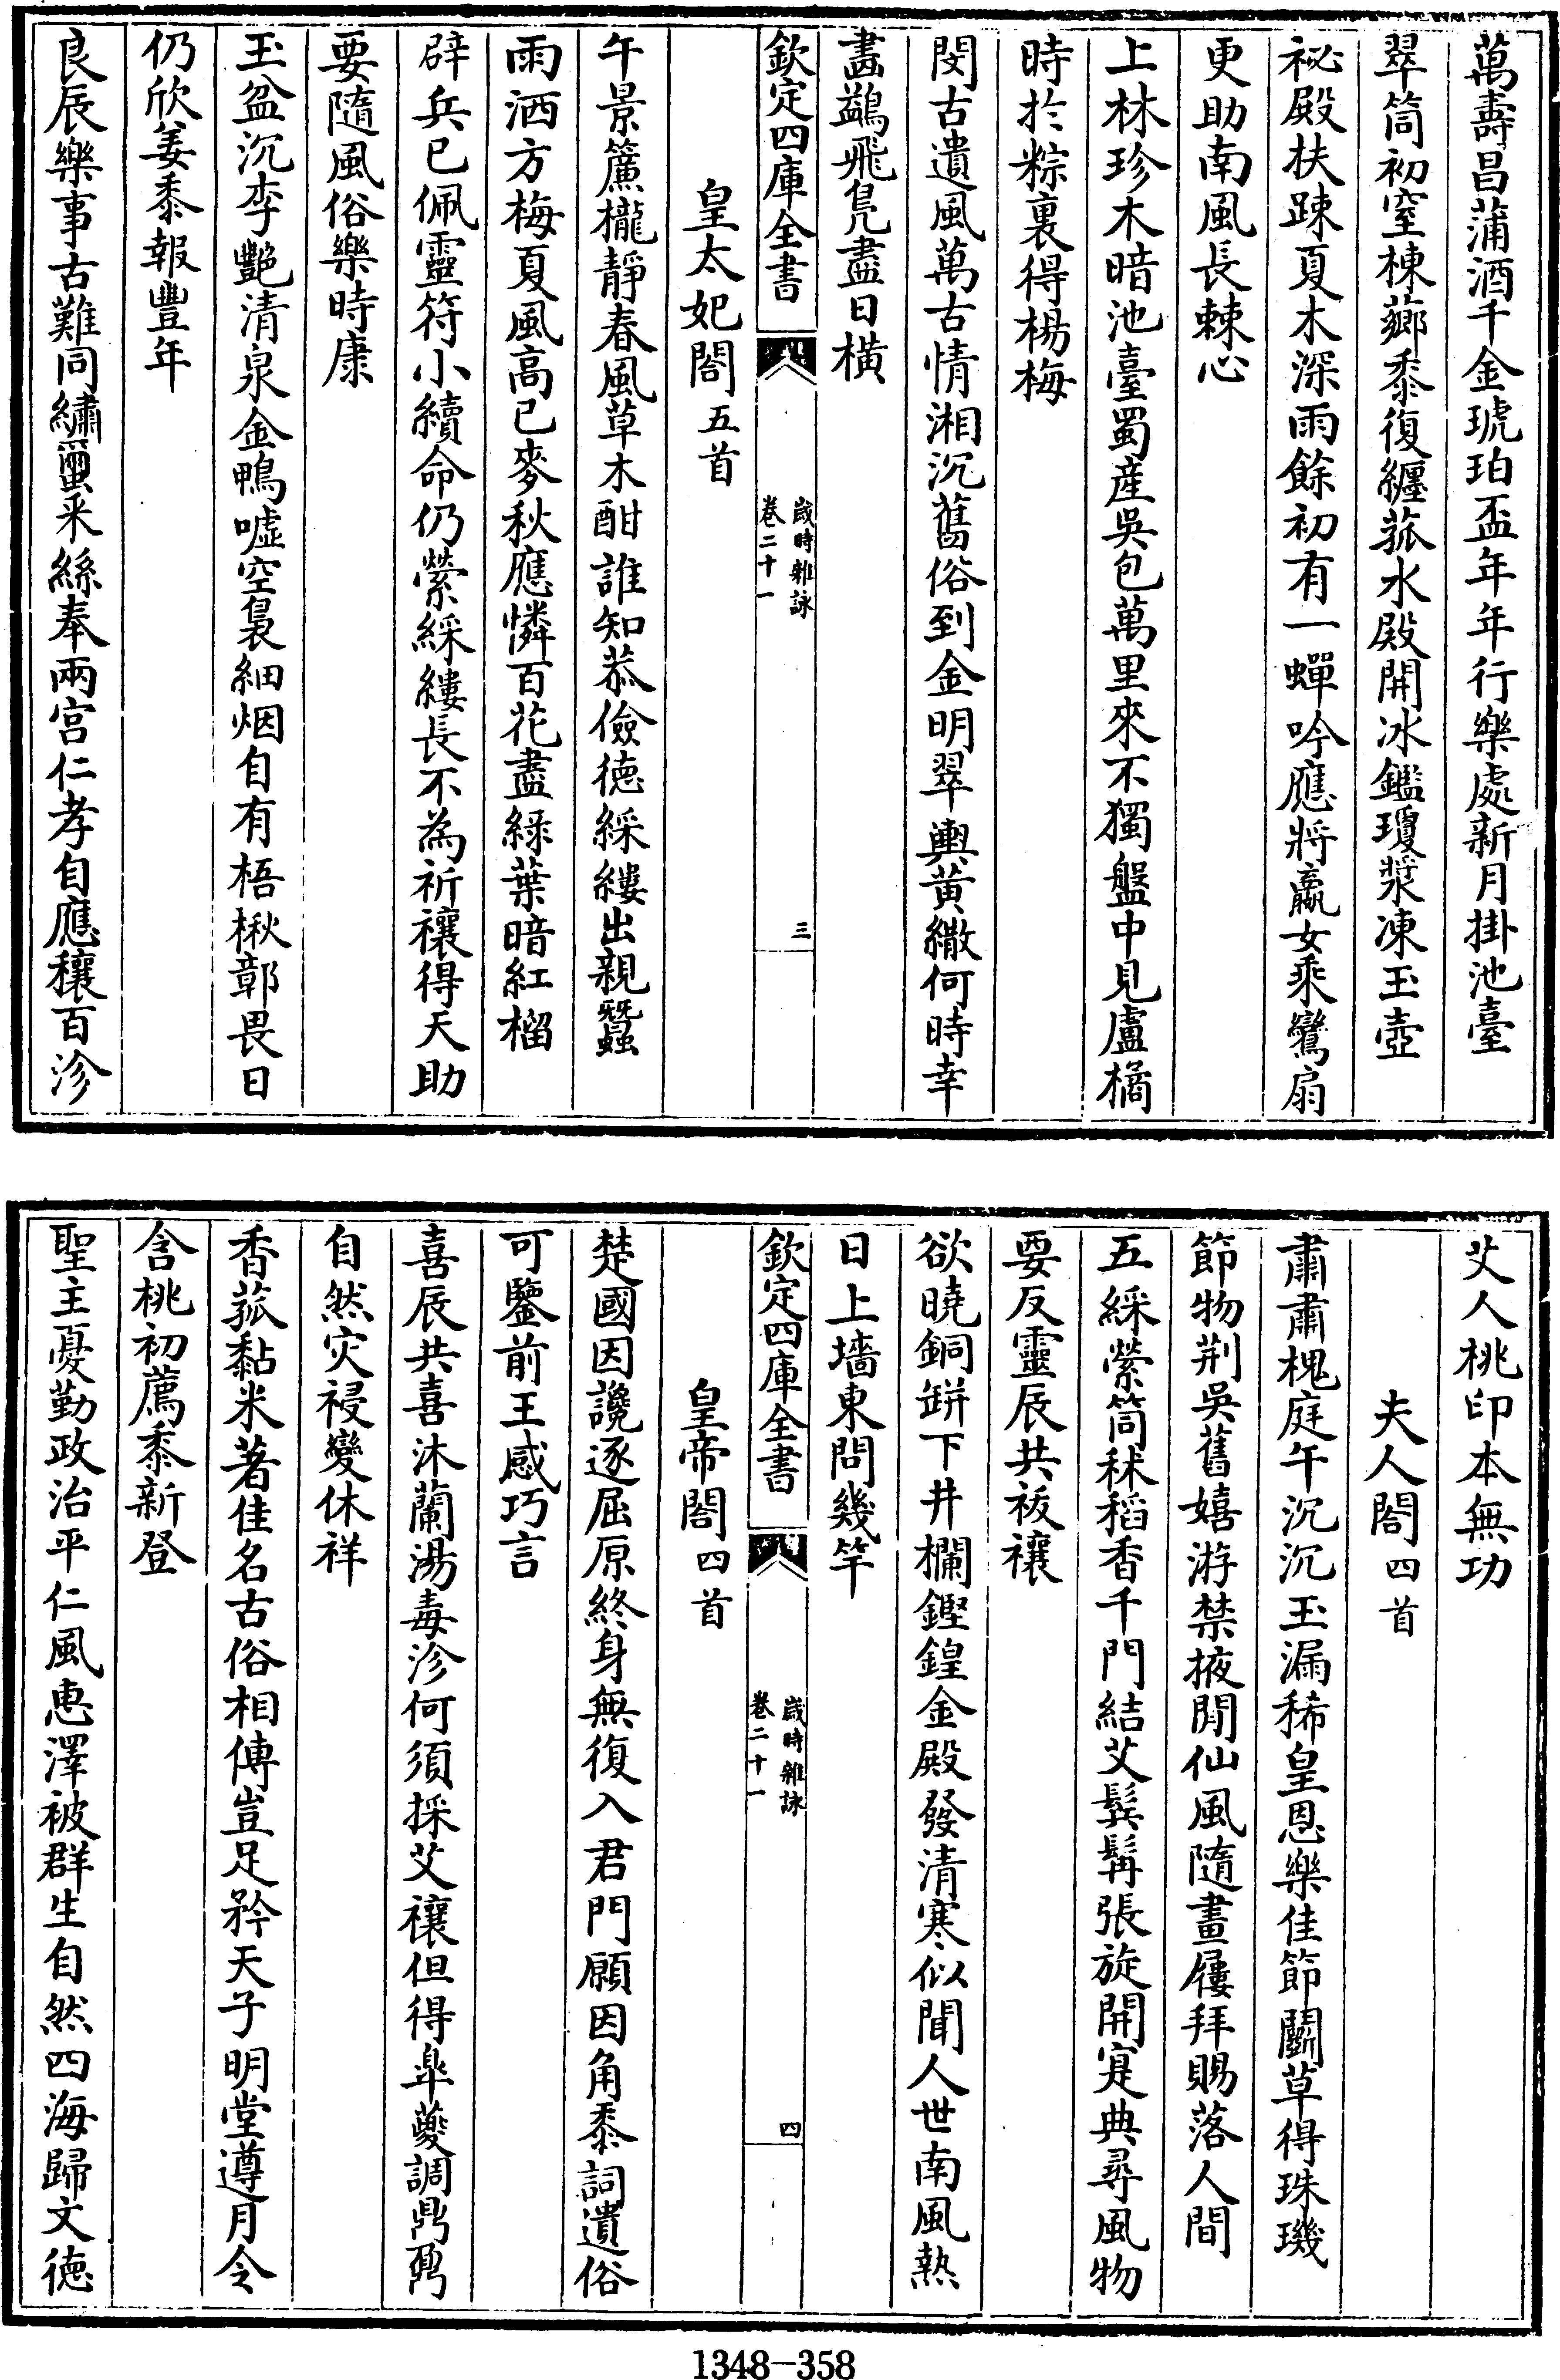 萬壽昌蒲酒千金琥珀盃年年行樂處新月掛池臺
翠筒初窒楝薌黍復纏菰水殿開冰鑑瓊漿凍玉壺
祕殿扶踈夏木深雨餘初有一蟬吟應將嬴女乘鸞扇
更助南風長棘心
上林珍木暗池臺蜀産吳包萬里來不獨盤中見盧橘
時於粽裏得楊梅
閔古遺風萬古情湘沉舊俗到金明翠輿黃繖何時幸
畵鷁飛鳬盡日橫
欽定四庫全書
歲時雜詠
卷二十一
三
皇太妃閤五首
午景簾櫳靜春風草木酣誰知恭儉徳綵縷出親蠶
雨洒方梅夏風高已麥秋應憐百花盡緑葉暗紅榴
辟兵已佩靈符小續命仍縈綵縷長不為祈禳得天助
要隨風俗樂時康
玉盆沉李艷清泉金鴨噓空裊細烟自有梧楸鄣畏日
仍欣姜黍報豐年
良辰樂事古難同繡蠒釆絲奉兩宫仁孝自應穰百沴
艾人桃印本無功
夫人閤四首
肅肅槐庭午沉沉玉漏稀皇恩樂佳節鬬草得珠璣
節物荆吳舊嬉游禁掖閒仙風隨畫屨拜賜落人間
五綵縈筒秫稻香千門結艾鬂髯張旋開寔典尋風物
要反靈辰共祓禳
欲曉銅缾下井欄鏗鍠金殿發清寒似聞人世南風熱
日上墻東問幾竿
欽定四庫全書
歲時雜詠
卷二十一
四
皇帝閤四首
楚國因讒逐屈原終身無復入君門願因角黍詞遺俗
可鑒前王感巧言
喜辰共喜沐蘭湯毒沴何須採艾禳但得臯䕫調鼎鼐
自然灾祲變休祥
香菰黏米著佳名古俗相傳豈足矜天子明堂遵月令
含桃初薦黍新登
聖主憂勤政治平仁風恵澤被群生自然四海歸文徳
1348-358